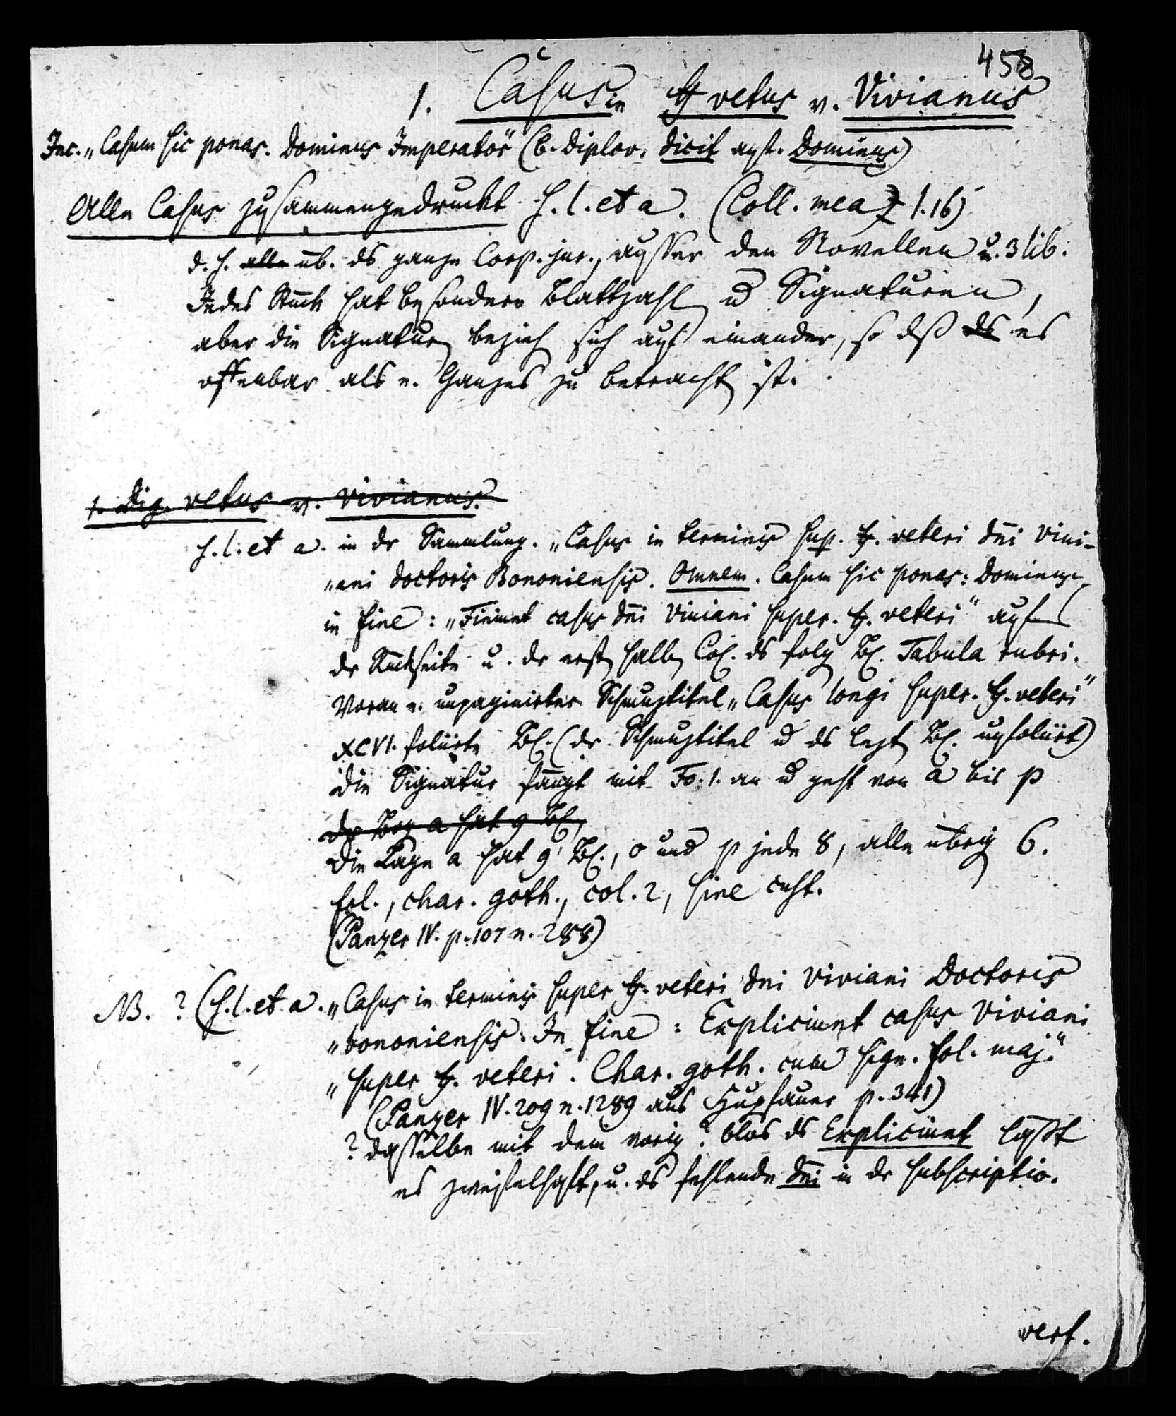 458
1. Casus in ff vetus v. Vivianus
Inc. „Casum hic ponas. Dominus Imperator (C. diplov. dicit anst. Dominus)
Alle Casus zusammengedruckt s. l. et a. (Coll. mea Z 1.16)
d. h. alle üb. ds ganze Corp. jur., ausser den Novellen u. 3 lib.
Jedes Stück hat besondere Blattzahl u Signaturen,
aber die Signatur bezieh sich auf einander, so dß ds es
offenbar als e. Ganzes zu betracht ist.
1. Dig. vetus v. Vivianus.
s. l. et a. in dr Sammlung. „Casus in terminis sup. ff. veteri dni Vivi-
„ani doctoris Bononiensis. Omnem. Casum hic ponas: Dominus
in fine: „Finiunt casus dni Viviani super. ff. veteri" auf
dr Rückseite u. dr erst halb Col. ds folg Bl. Tabula rubri.
Voran e. unpaginirter Schmuztitel „Casus longi super. ff. veteri"
XCVI. foliirte Bl. (dr Schmuztitel u ds lezt Bl. unfoliirt)
die Signatur fängt mit Fo: 1. an u geht von a bis p
dr Bog a hat 9 Bl,
die Lage a hat 9 Bl., o und p jede 8, alle übrig 6.
fol., char. goth., col. 2, sine cust.
(Panzer IV. p. 107 n. 288)
NB. ? (s. l. et a. „Casus in terminis super ff. veteri dni Viviani Doctoris
„bononiensis. In fine: Expliciunt casus Viviani
„super ff. veteri. Char. goth. cum sign. fol. maj."
(Panzer IV. 209 n. 1289 aus Hupfauer p. 341)
? dasselbe mit dem vorig? blos ds Expliciunt lässt
es zweifelhaft, u. ds fehlende dni in dr subscriptio.
vert.